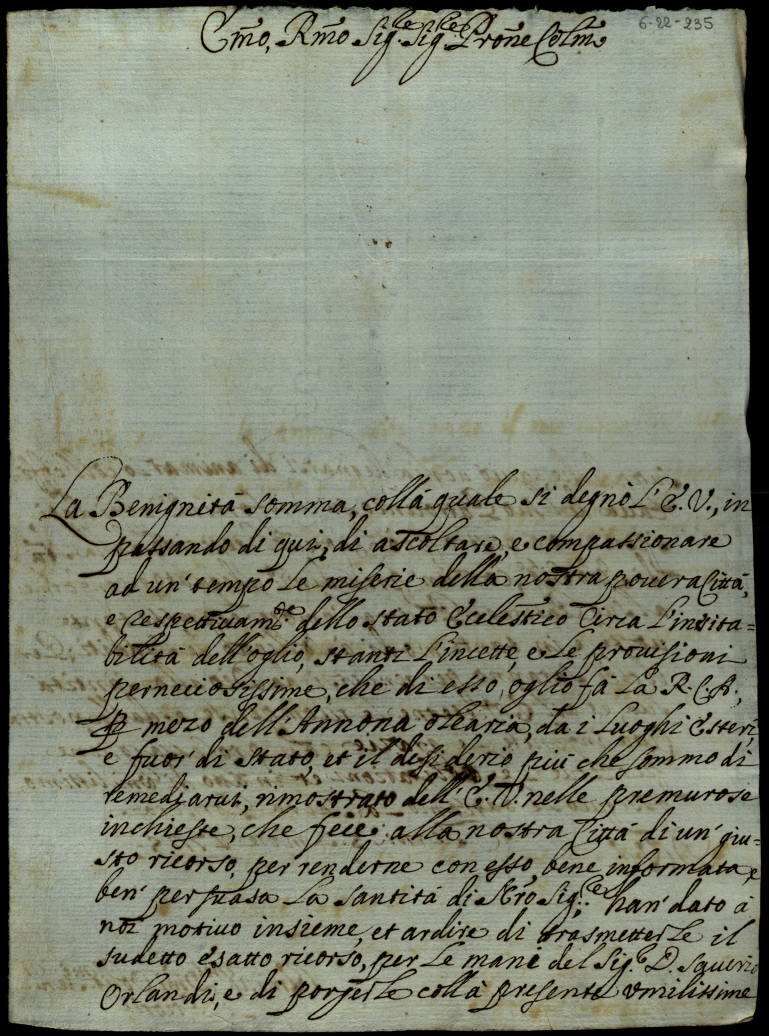 6-22-235
Em̃o, Rm̃o Sig.re Sig.re Prone Colm̃o
La Benignità somma, colla quale si degnò L'E.V., in
passando di qui, di ascoltare, e compassionare
ad un' tempo le miserie della nostra povera Città,
e respettivam.te dello stato Ecclestico circa L'insita=
bilità dell'oglio, stanti L'incette, e Le provisioni
perneciosissime, che di esso, oglio fà La R.C.A.,
p mezo dell'Annona olearia, da i Luoghi Esteri,
e fuor' di stato, et il desiderio più che sommo di
remediarui, rimostrato dell'E.V. nelle premurose
inchieste, che fece alla nostra Città di un' giu=
sto ricorso, per renderne con esso bene informata, e
ben' persuasa La Santità di Nr̃o Sig.re, han' dato à
noi motivo insieme, et ardire di trasmetterLe il
sudetto esatto ricorso, per Le mane del Sig.re D.
Orlandi, e di porgerLe colla presente umilissime